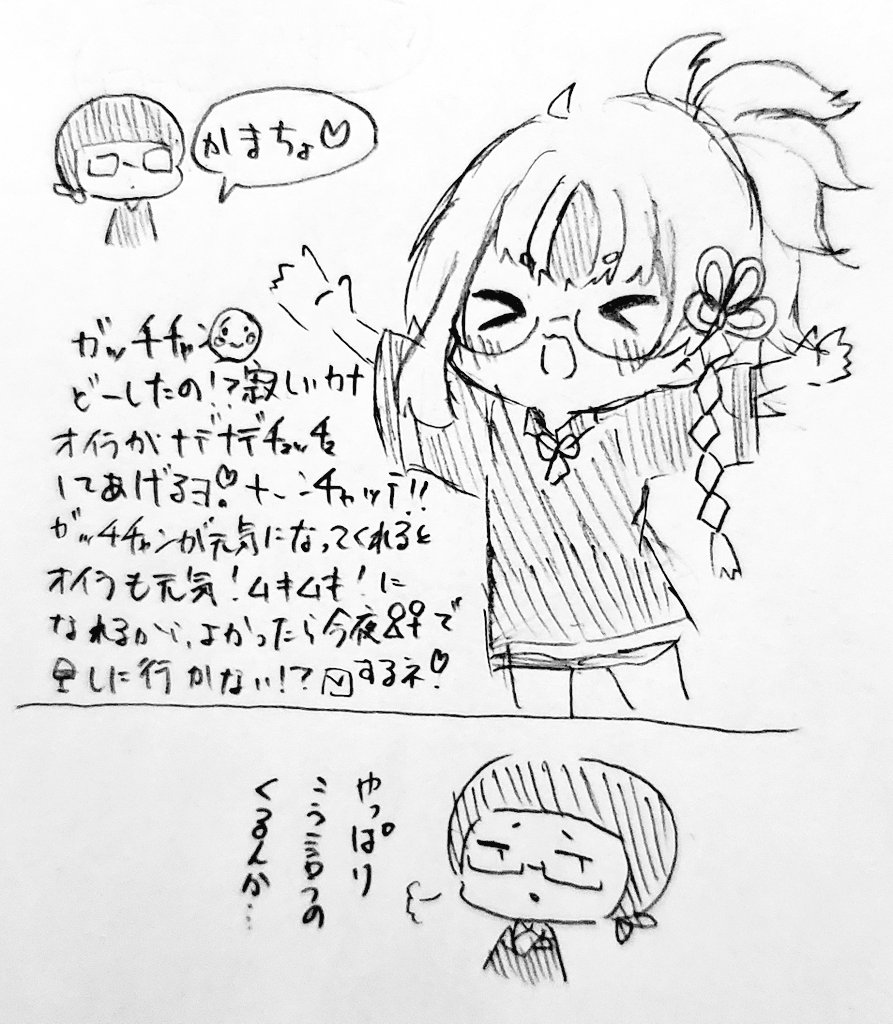 かまちょ♡
ガッチチャン
どーしたの!?寂しいカナ
オイラがナデナデチュッチュ
してあげるヨ♡ナーンチャッテ!!
ガッチチャンが元気になってくれると
オイラも元気!ムキムキ!に
なれるから、よかったら今夜
しに行かない!?するネ♡
やっぱり
こう言うの
くるんか…